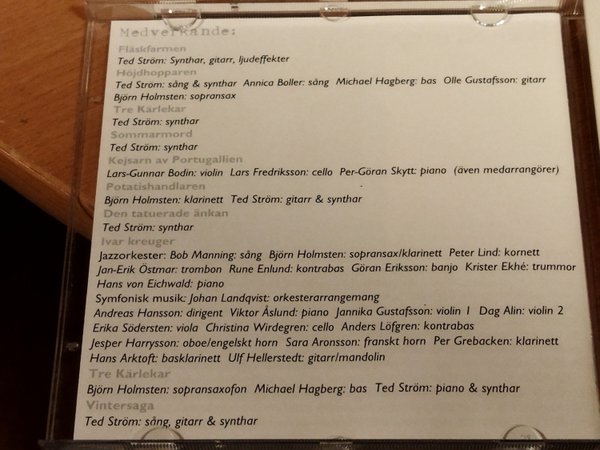 Medverkande:
Fläskfarmen
Ted Ström: Synthar, gitarr, ljudeffekter
Höjdhopparen
Ted Ström: sång & synthar Annica Boller: sång Michael Hagberg: bas Olle Gustafsson: gitarr
Björn Holmsten: sopransax
Tre Kärlekar
Ted Ström: synthar
Sommarmord
Ted Ström: synthar
Kejsarn av Portugallien
Lars-Gunnar Bodin: violin Lars Fredriksson: cello Per-Göran Skytt: piano (även medarrangörer)
Potatishandlaren
Björn Holmsten: klarinett Ted Ström: gitarr & synthar
Den tatuerade änkan
Ted Ström: synthar
Ivar kreuger
Jazzorkester: Bob Manning: sång Björn Holmsten: sopransax/klarinett Peter Lind: kornett
Jan-Erik Östmar: trombon Rune Enlund: kontrabas Göran Eriksson: banjo Krister Ekhé: trummor
Hans von Eichwald: piano
Symfonisk musik: Johan Landqvist: orkesterarrangemang
Andreas Hansson: dirigent Viktor Åslund: piano Jannika Gustafsson: violin 1 Dag Alin: violin 2
Erika Södersten: viola Christina Wirdegren: cello Anders Löfgren: kontrabas
Jesper Harrysson: oboe/engelskt horn Sara Aronsson: franskt horn Per Grebacken: klarinett
Hans Arktoft: basklarinett Ulf Hellerstedt: gitarr/mandolin
Tre Kärlekar
Björn Holmsten: sopransaxofon Michael Hagberg: bas Ted Ström: piano & synthar
Vintersaga
Ted Ström: sång, gitarr & synthar